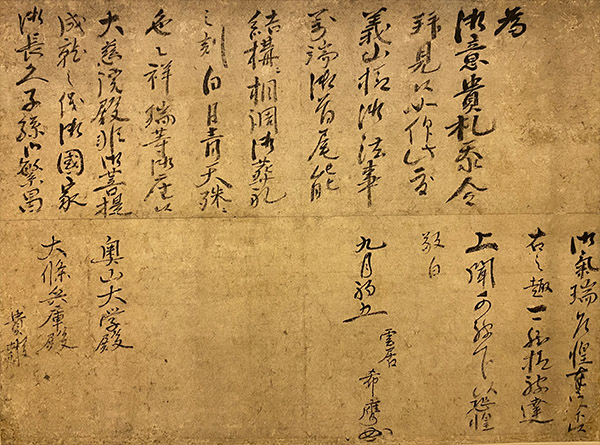 為
御意貴札忝令
拝見候如仰此度
義山様御法事
万端御首尾能
結構ニ相調御葬礼
之刻白日青天殊ニ
色々祥瑞等御座候
大慈院殿御菩提
成就之儀御国家
御長久子孫御繁昌
御気瑞
右之趣一々被達
上聞可被下候恐惶
敬白
九月初五
雲居
希膺
奥山大学殿
大條兵庫殿
貴報